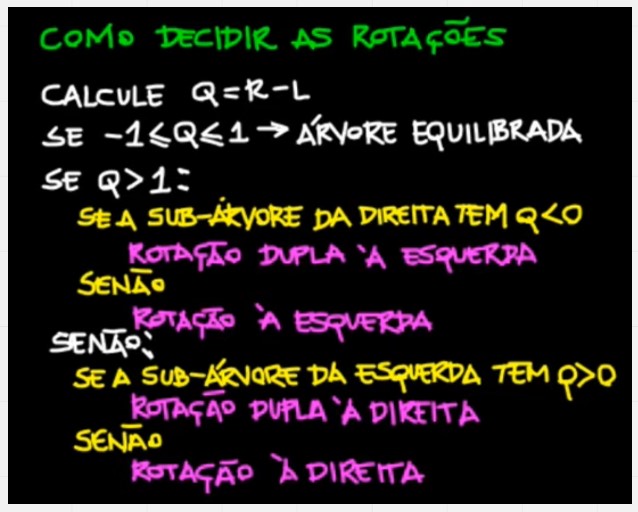 COMO DECIDIR AS ROTAÇÕES
CALCULE Q=R-L
SE -1≤Q≤1 → ÁRVORE EQUILIBRADA
SE Q>1:
SE A SUB-ÁRVORE DA DIREITA TEM Q<0
ROTAÇÃO DUPLA À ESQUERDA
SENÃO
ROTAÇÃO À ESQUERDA
SENÃO:
SE A SUB-ÁRVORE DA ESQUERDA TEM Q>0
ROTAÇÃO DUPLA À DIREITA
SENÃO
ROTAÇÃO À DIREITA